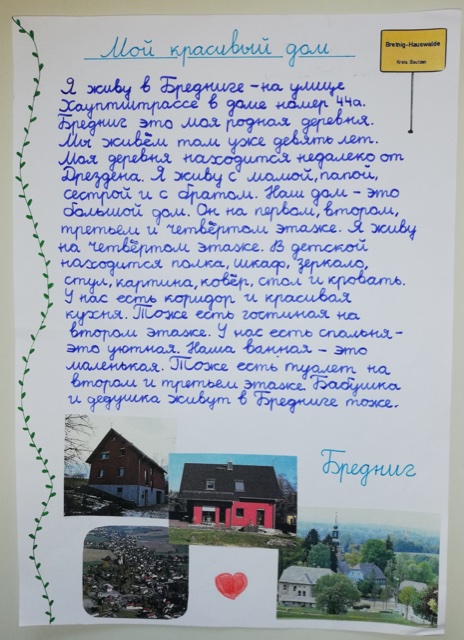 Мой красивый дом
Bretnig-Hauswalde
Kreis Bautzen
Я живу в Бредниге - на улице
Хауптштрассе в доме номер 44а.
Бредниг это моя родная деревня.
Мы живём там уже девять лет.
Моя деревня находится недалеко от
Дрездена. Я живу с мамой, папой,
сестрой и с братом. Наш дом - это
большой дом. Он на первом, втором,
третьем и четвёртом этаже. Я живу
на четвёртом этаже. В детской
находится полка, шкаф, зеркало,
стул, картина, ковёр, стол и кровать.
У нас есть коридор и красивая
кухня. Тоже есть гостиная на
втором этаже. У нас есть спальня -
это уютная. Наша ванная - это
маленькая. Тоже есть туалет на
втором и третьем этаже. Бабушка
и дедушка живут в Бредниге тоже.
Бредниг